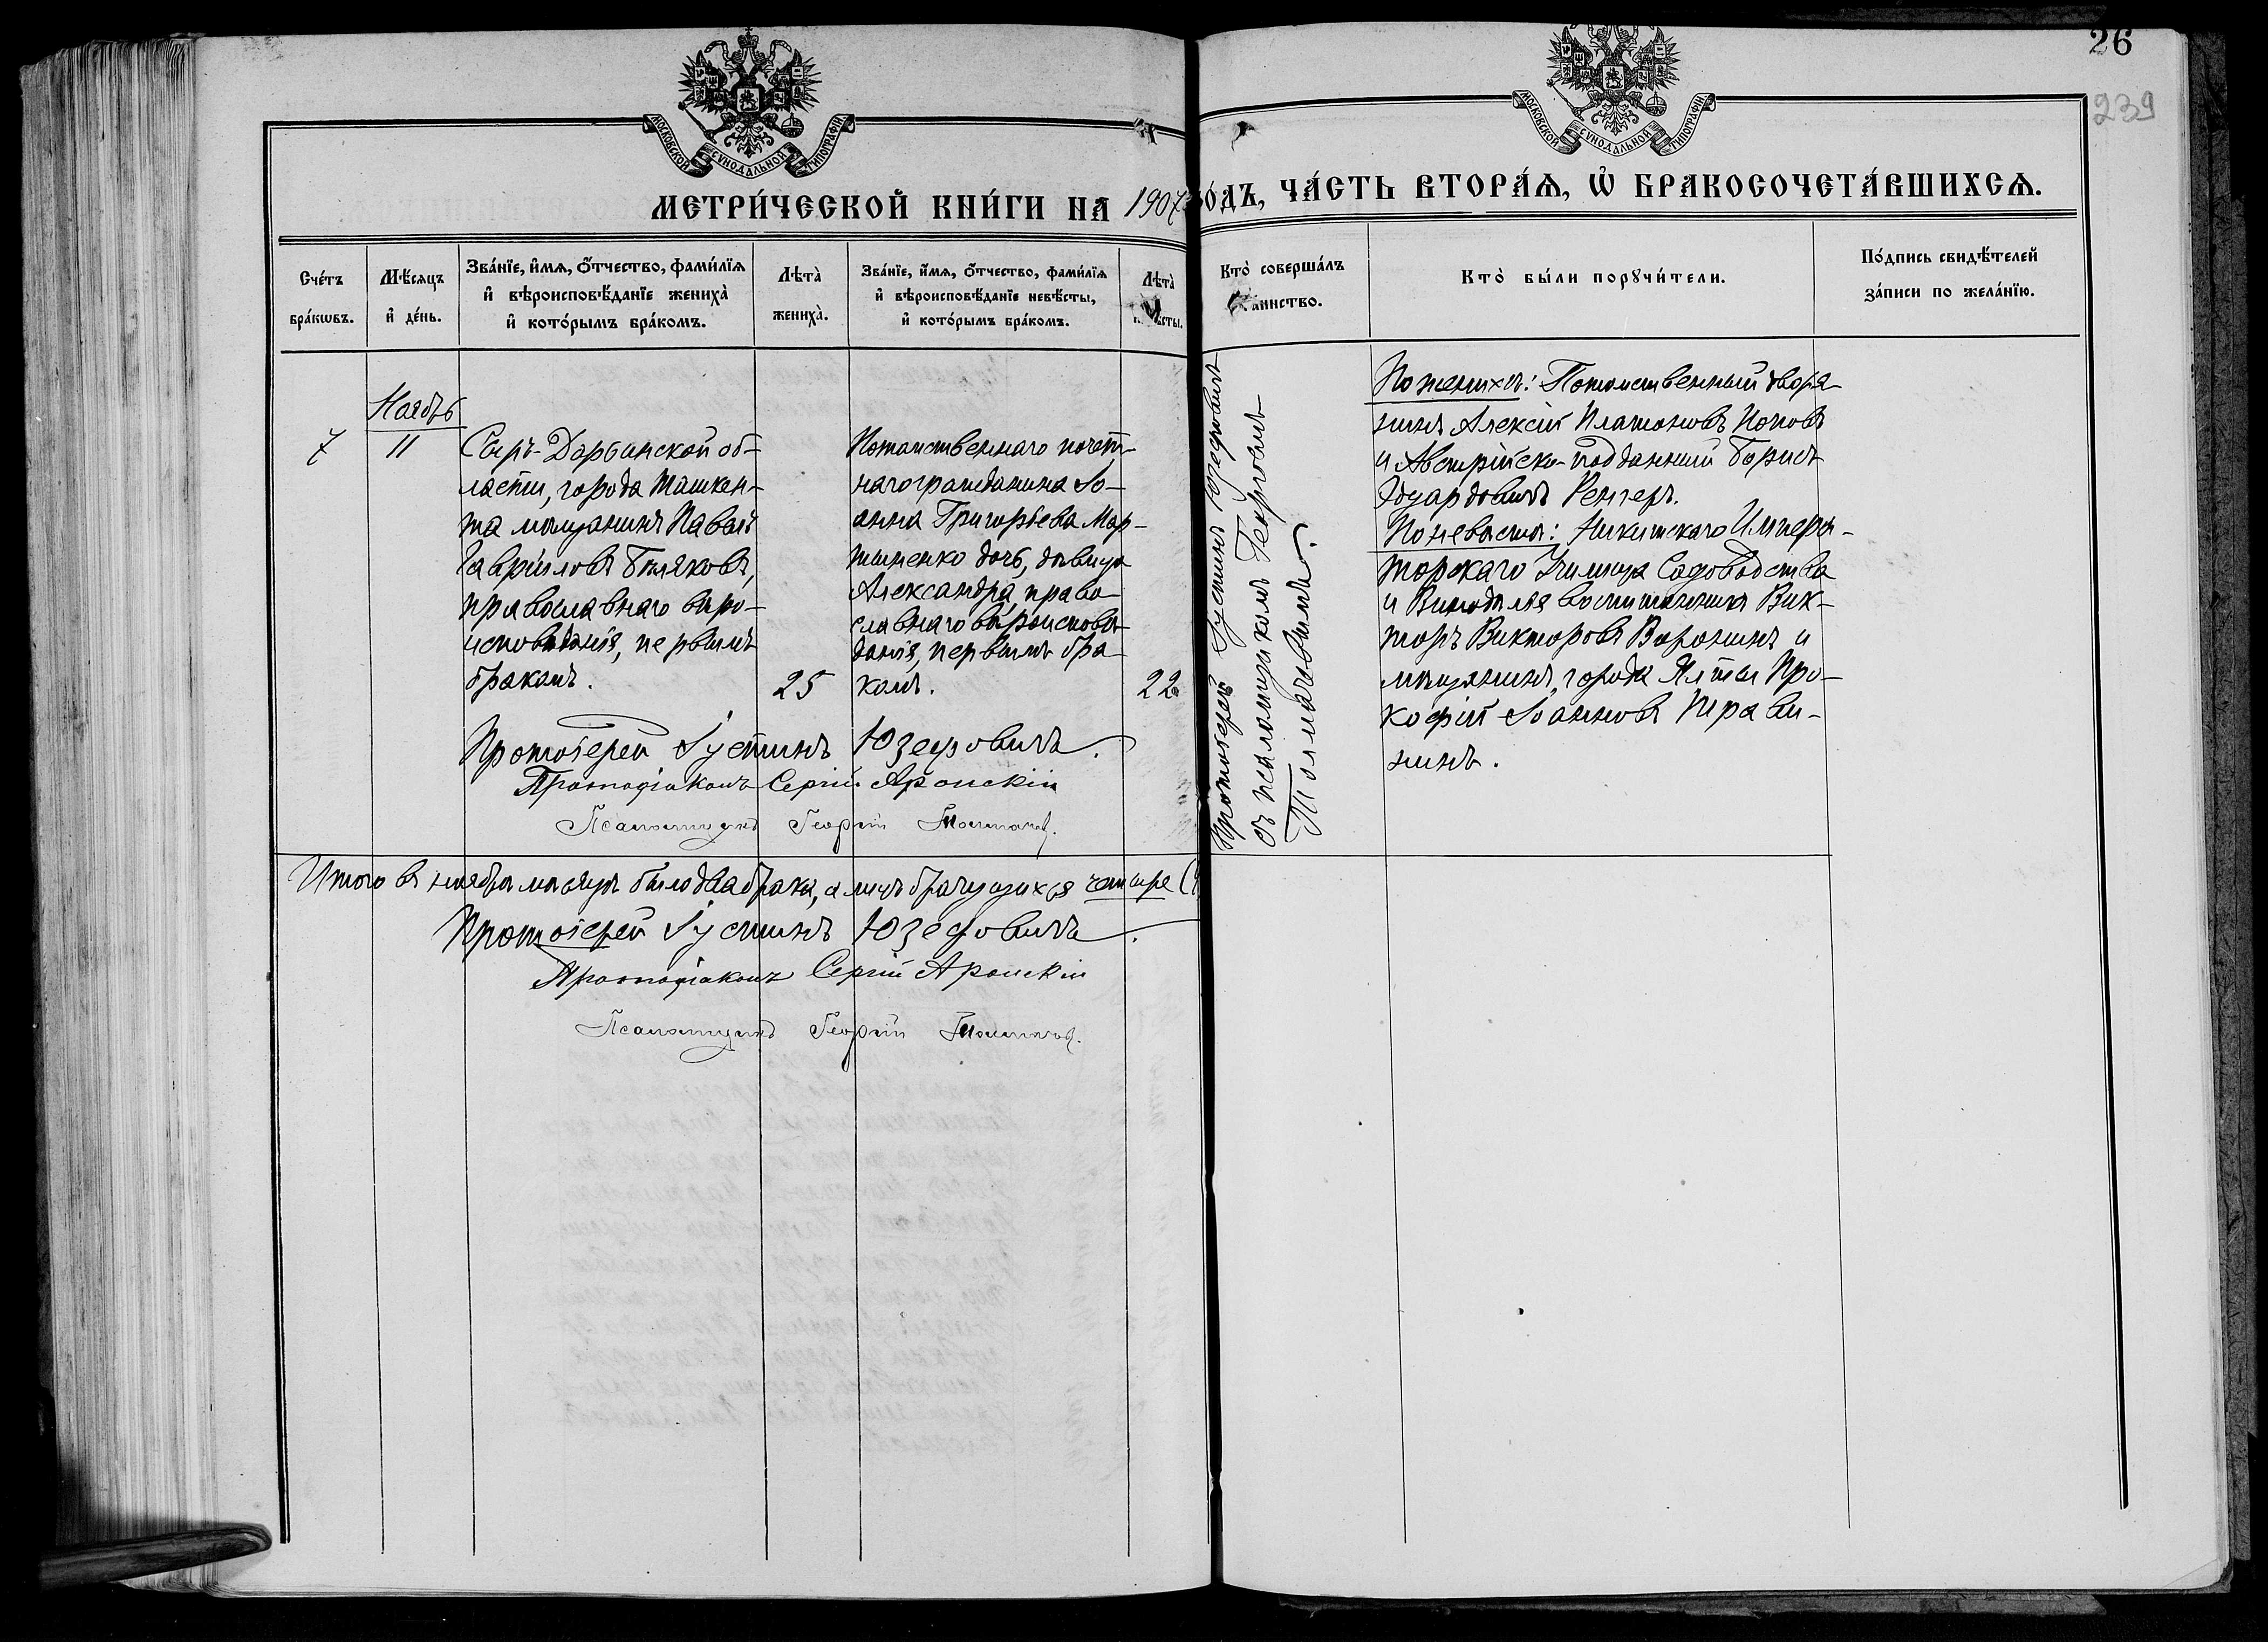 26
239
МОСКОВСКОЙ СѴНОДАЛЬНОЙ ТИПОГРАФІИ
МОСКОВСКОЙ СѴНОДАЛЬНОЙ ТИПОГРАФІИ
МЕТРИ́ЧЕСКОЙ КНИ́ГИ НА 1907 го́дъ, ЧА́СТЬ ВТОРА́Я, Ѡ БРАКОСОЧЕТА́ВШИХСЯ.
Сче́тъ бра́кѡвъ.
Мѣ́сяцъ и҆ де́нь.
Зва́нїе, и҆́мя, ѻ҆́тчество, фами́лїя
и҆ вѣроисповѣ́данїе жениха̀
и҆ кото́рымъ бра́комъ.
Лѣта̀ жениха̀.
Зва́нїе, и҆́мя, ѻ҆́тчество, фами́лїя
и҆ вѣроисповѣ́данїе невѣ́сты,
и҆ кото́рымъ бра́комъ.
Лѣта̀
Кто̀ соверша́лъ
таинство.
Кто̀ бы́ли порꙋчи́тели.
По́дпись свидѣ́телей
за́писи по жела́нїю.
7
Ноябрь
11
Сыръ-Дарьинской об-
ласти, города Ташкен-
та мѣщанинъ Павелъ
Гавріиловъ Бѣляковъ,
православнаго вѣро-
исповѣданія, первымъ
бракомъ.
25
Потомственнаго почет-
наго гражданина Іо-
анна Григорьева Мар-
тыненко дочь, дѣвица
Александра, право-
славнаго вѣроисповѣ-
данія, первымъ бра-
комъ.
22
Протоіерей Іустинъ Юзефовичъ
съ псаломщикомъ Георгіемъ
Толмачевымъ.
По женихѣ: Потомственный дворя-
нинъ Алексій Платоновъ Поповъ
и Австрійско-подданный Борисъ
Эдуардовичъ Ренгеръ.
По невѣстѣ: Никитскаго Импера-
торскаго Училища Садоводства
и Винодѣлія воспитанникъ Вик-
торъ Викторовъ Воронинъ и
мѣщанинъ города Ялты Про-
кофій Іоанновъ Трави-
нинъ.
Протоіерей Іустинъ Юзефовичъ.
Протодіаконъ Сергій Аронскій
Псаломщикъ Георгій Толмачев.
Итого въ ноябрѣ мѣсяцѣ было два брака, а лицъ брачущихся четыре (4
Протоіерей Іустинъ Юзефовичъ.
Протодіаконъ Сергій Аронскій
Псаломщикъ Георгій Толмачев.